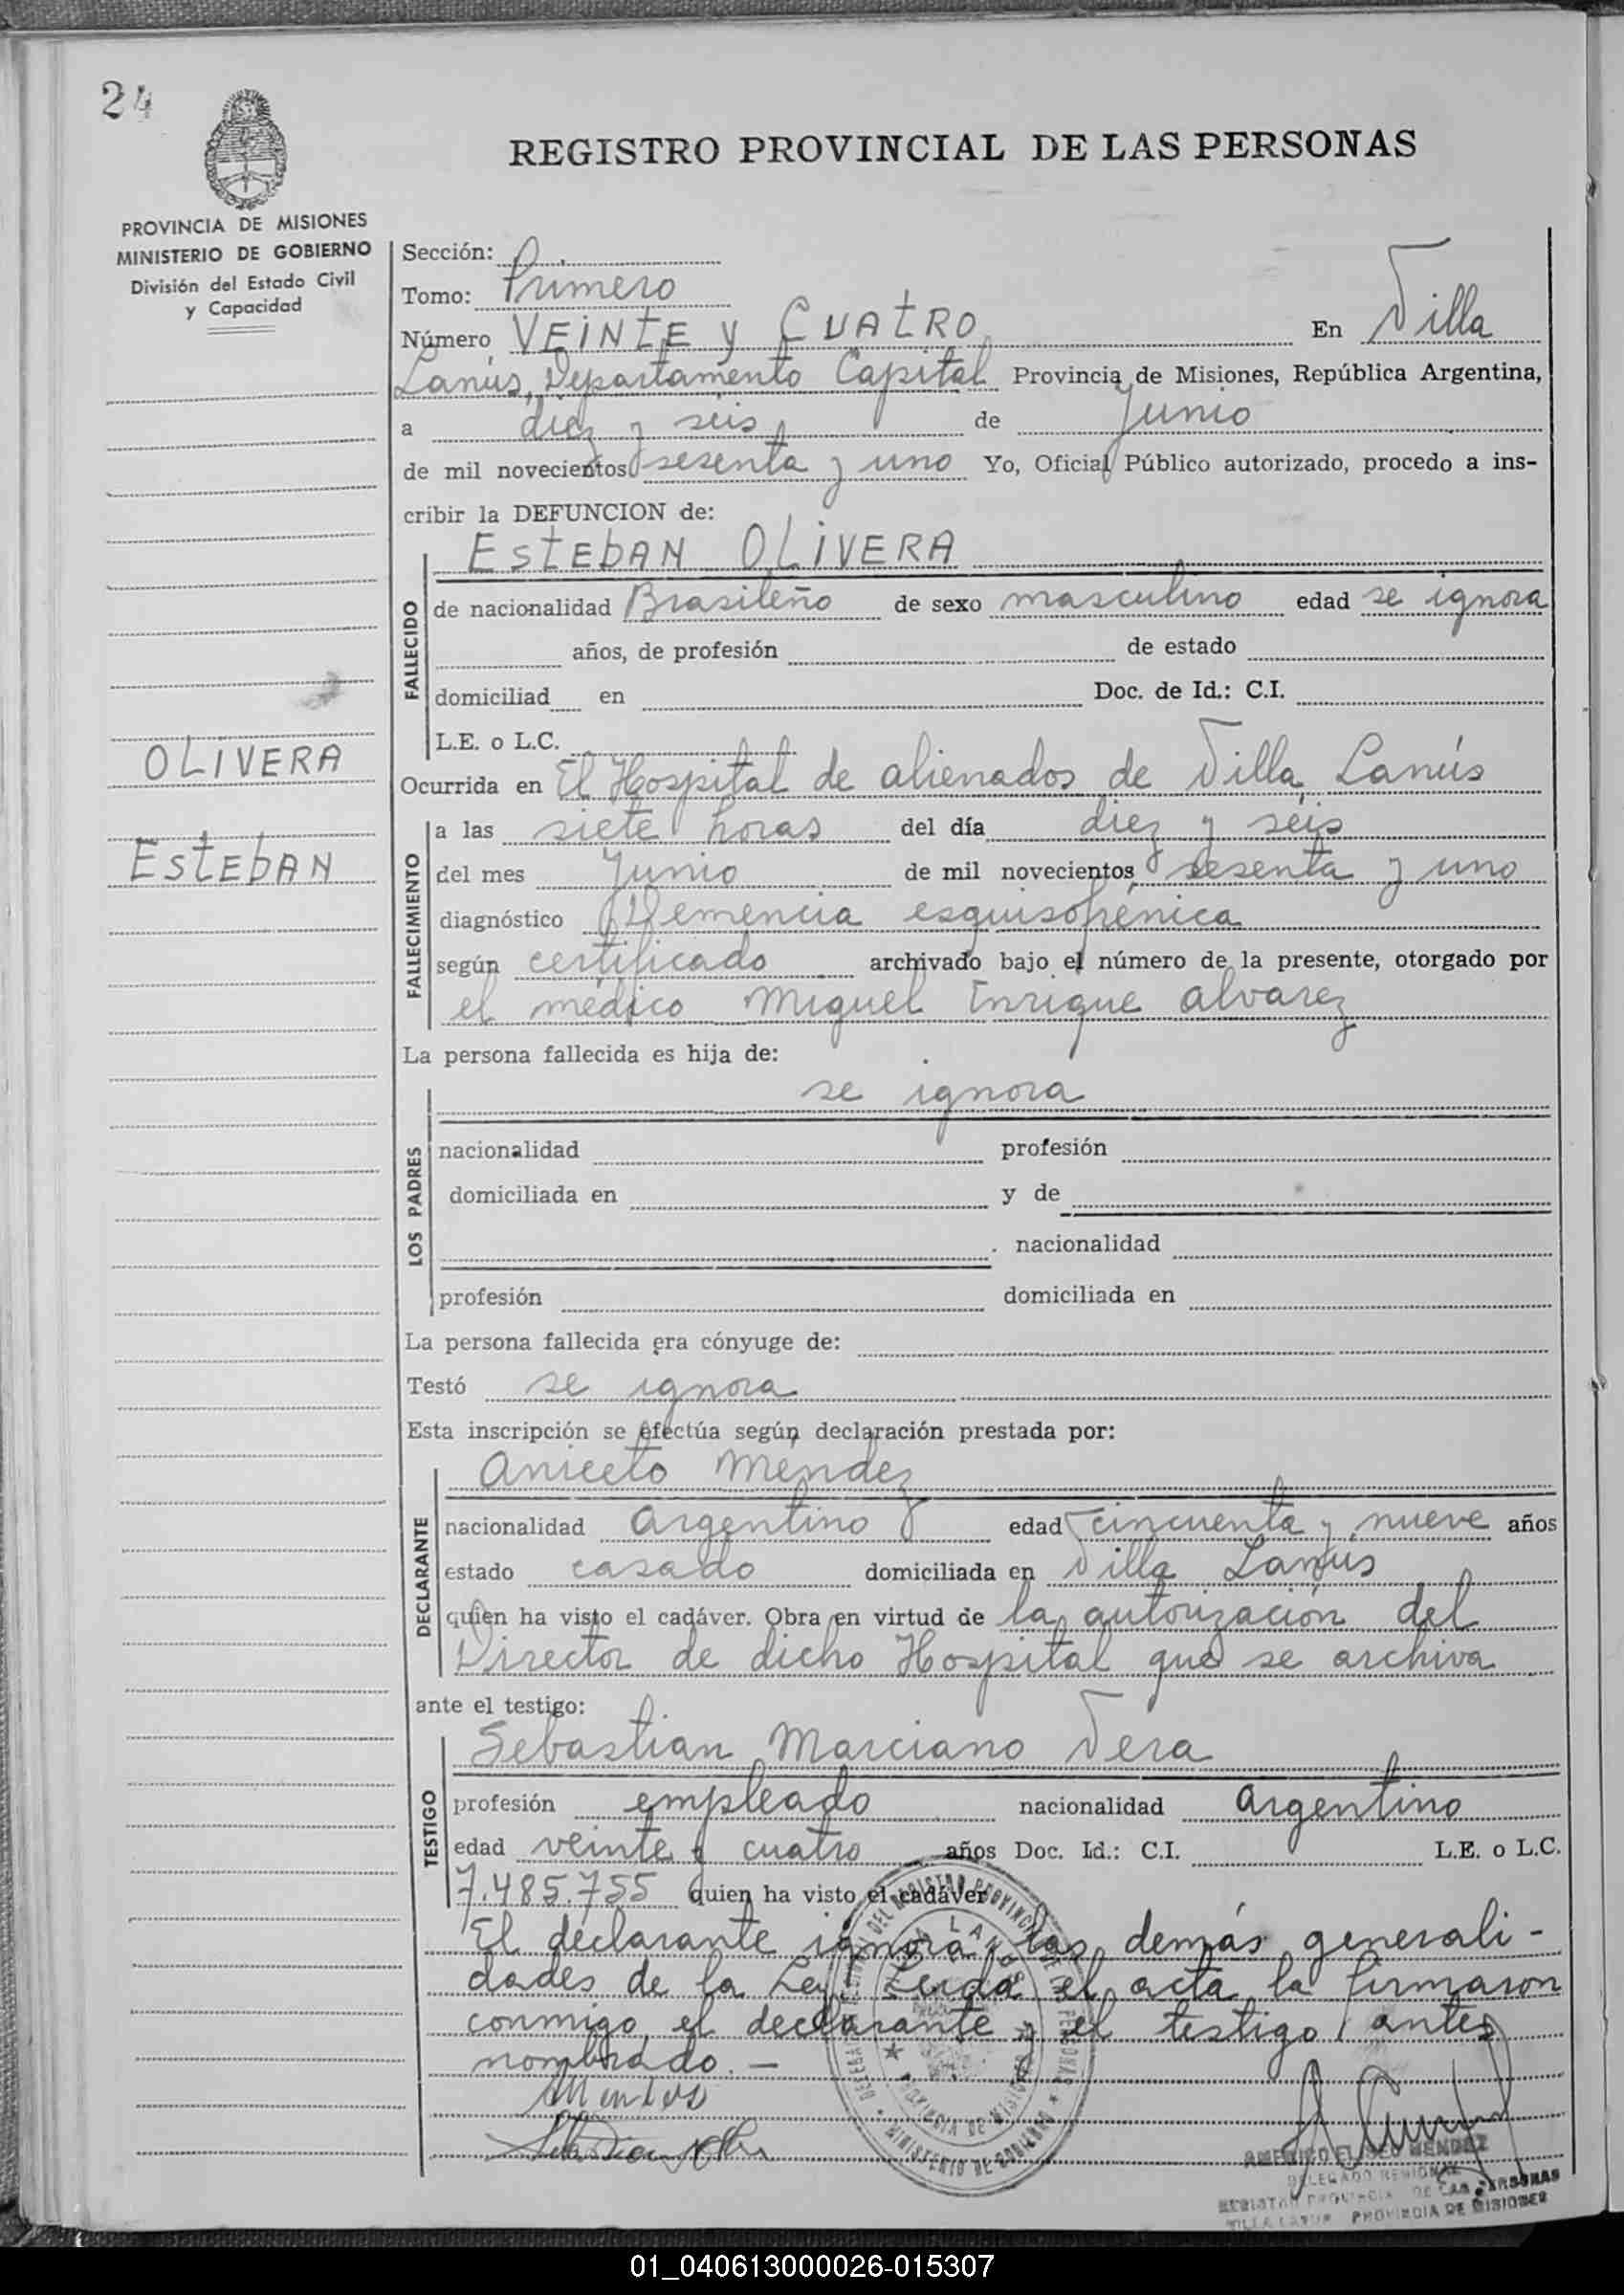 24
REGISTRO PROVINCIAL DE LAS PERSONAS
PROVINCIA DE MISIONES
MINISTERIO DE GOBIERNO
División del Estado Civil
y Capacidad
Sección:
Tomo: Primero
Número VEINTE y CUATRO En Villa
Lanús, Departamento Capital Provincia de Misiones, República Argentina,
a diez y seis de Junio
de mil novecientos sesenta y uno Yo, Oficial Público autorizado, procedo a ins-
cribir la DEFUNCION de:
ESTEBAN OLIVERA
FALLECIDO
de nacionalidad Brasileño de sexo masculino edad se ignora
años, de profesión de estado
domiciliad en Doc. de Id.: C.I.
L.E. o L.C.
OLIVERA
ESTEBAN
Ocurrida en El Hospital de alienados de Villa Lanús
FALLECIMIENTO
a las siete horas del día diez y seis
del mes Junio de mil novecientos sesenta y uno
diagnóstico Demencia esquisofrénica
según certificado archivado bajo el número de la presente, otorgado por
el médico Miguel Enrique alvarez
La persona fallecida es hija de:
LOS PADRES
se ignora
nacionalidad profesión
domiciliada en y de
nacionalidad
profesión domiciliada en
La persona fallecida era cónyuge de:
Testó se ignora
Esta inscripción se efectúa según declaración prestada por:
DECLARANTE
aniceto Méndez
nacionalidad argentino edad cincuenta y nueve años
estado casado domiciliada en Villa Lanús
quien ha visto el cadáver. Obra en virtud de la autorización del
Director de dicho Hospital que se archiva
ante el testigo:
TESTIGO
Sebastian Marciano Vera
profesión empleado nacionalidad argentino
edad veinte y cuatro años Doc. Id.: C.I. L.E. o L.C.
7.485.755 quien ha visto el cadáver
El declarante ignora las demás generali-
dades de la Ley. Leida el acta la firmaron
conmigo, el declarante y el testigo antes
nombrado. —
AMERICO ELISEO MENDEZ
DELEGADO REGIONAL
REGISTRO PROVINCIAL DE LAS PERSONAS
VILLA LANUS PROVINCIA DE MISIONES
VILLA LANUS
PROVINCIA DE MISIONES
MINISTERIO DE GOBIERNO
01_040613000026-015307